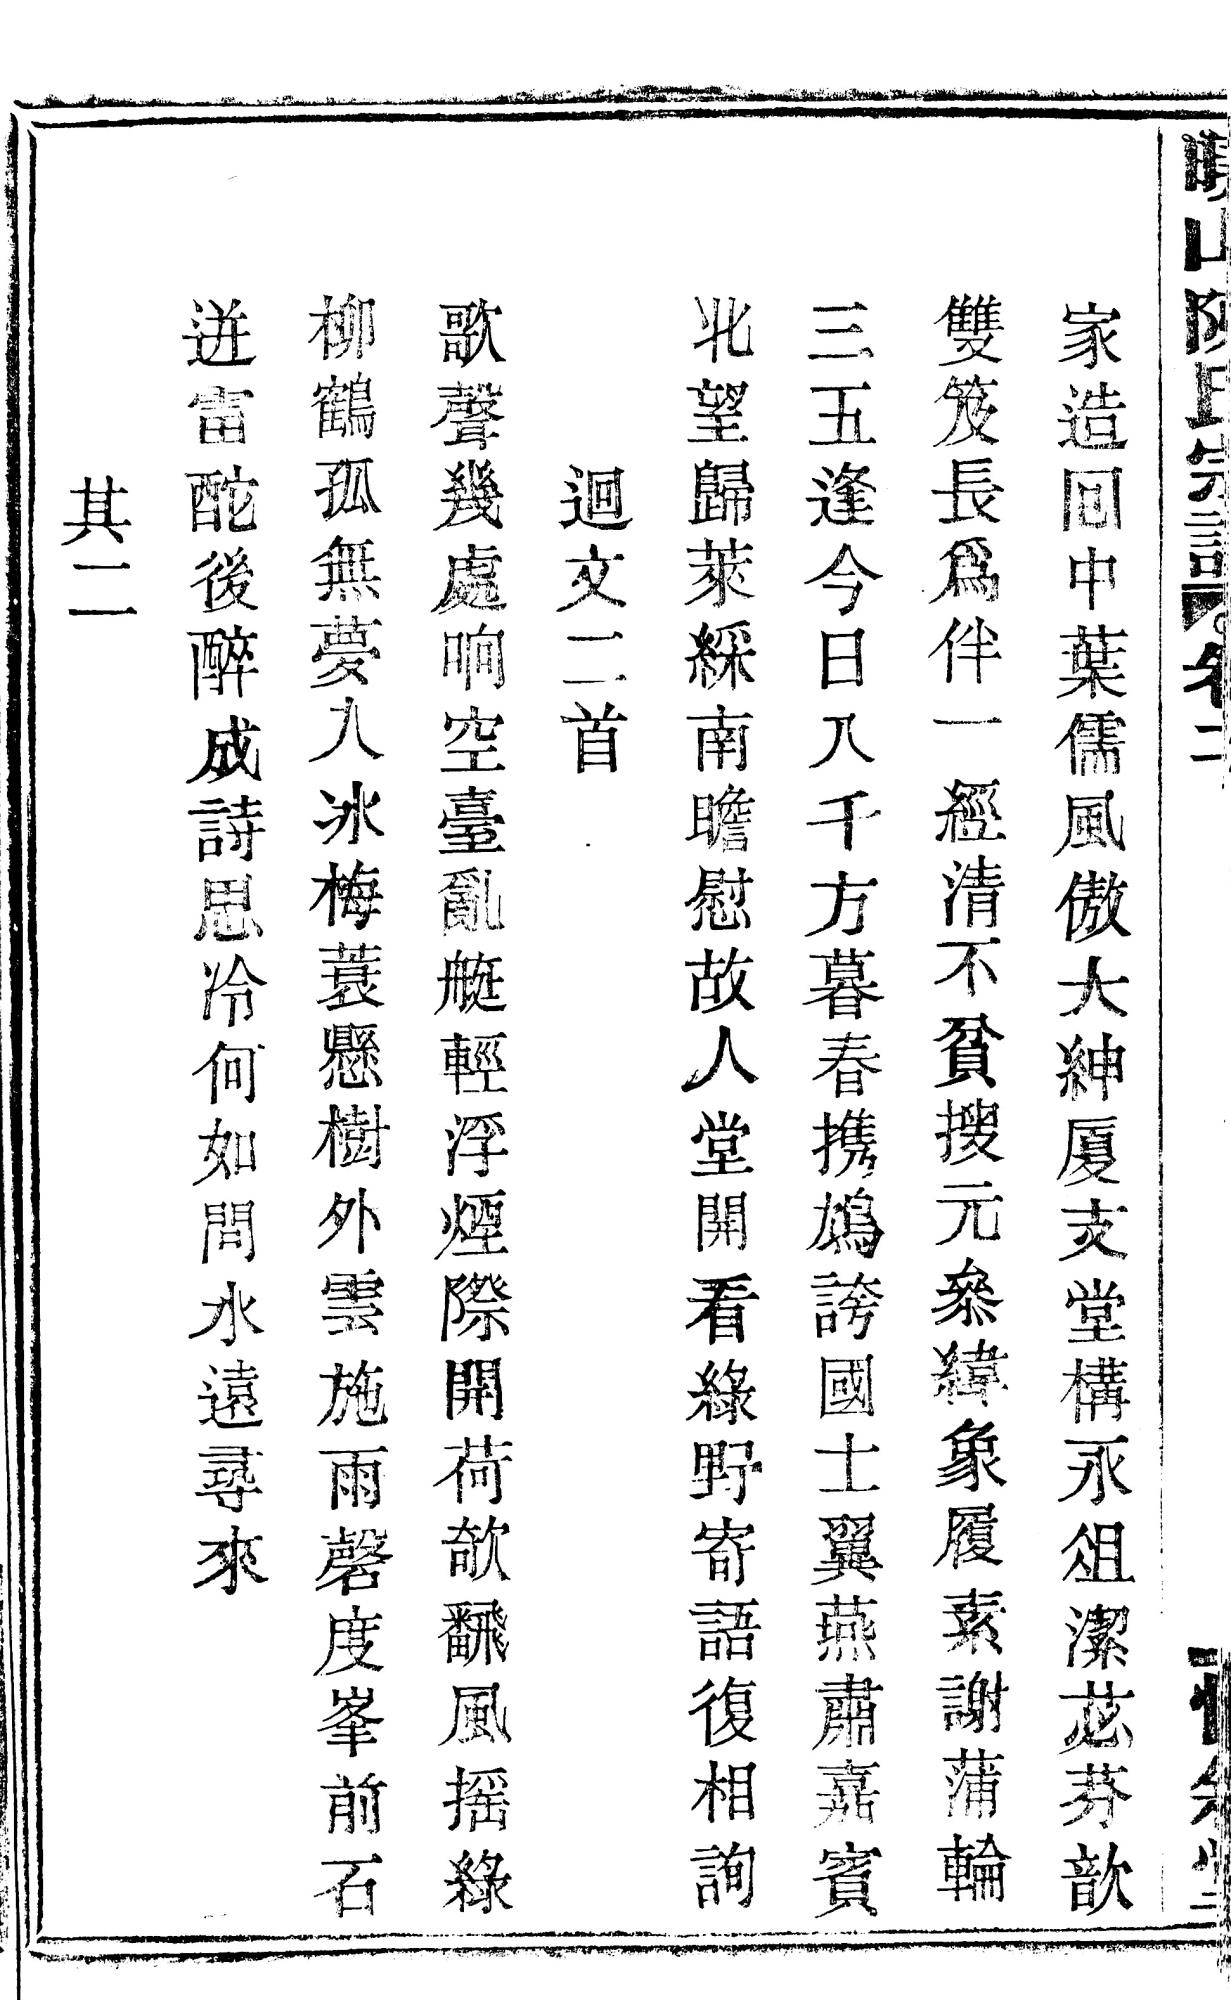 家造囘中葉儒風傲大紳厦支堂構承俎潔苾芬歆
雙笈長爲伴一經清不貧搜元叅緯象履素謝蒲輪
三五逢今日八千方暮春携鳩誇國士翼燕肅嘉賓
北望歸萊綵南瞻慰故人堂開看綠野寄語復相詢
迴文二首
歌聲幾處响空臺亂艇輕浮煙際開荷欹翻風摇綠
柳鶴孤無夢入冰梅蓑懸樹外雲施雨磬度峯前石
迸雷酡後醉成詩思冷何如間水遠尋來
其二
山陳氏宗譜卷二